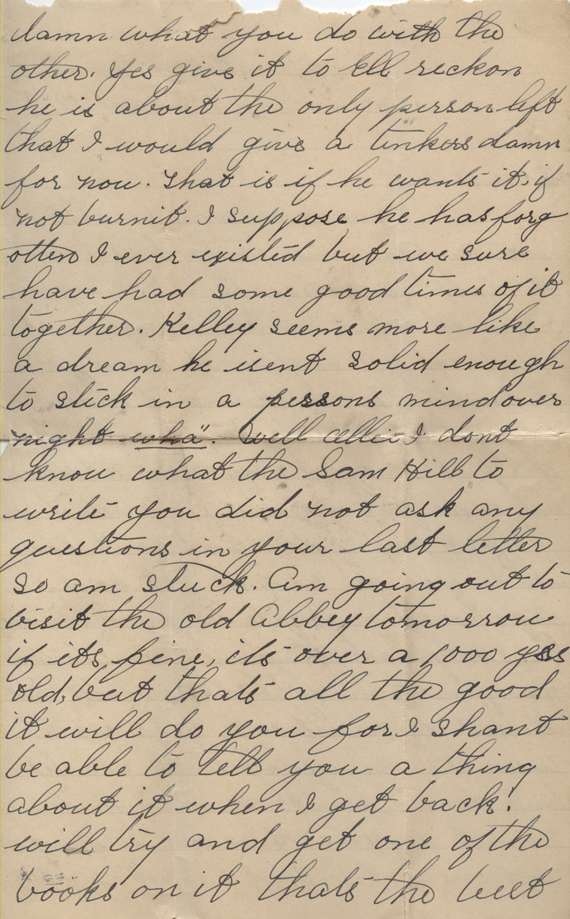 damn what you do with the
other. Yes give it to Ell reckon
he is about the only person left
that I would give a tinkers damn
for now. That is if he wants it, if
not burnit. I suppose he has forg
otten I ever existed but we sure
have had some good times of it
together. Kelley seems more like
a dream he isent solid enough
to stick in a persons mind over
night wha". Well allie I dont
know what the Sam Hill to
write you did not ask any
questions in your last letter
so am stuck. Am going out to
visit the old Abbey tomorrow
if its fine, its over a 1000 yrs
old, but thats all the good
it will do you for I shant
be able to tell you a thing
about it when I get back.
will try and get one of the
books on it thats the best